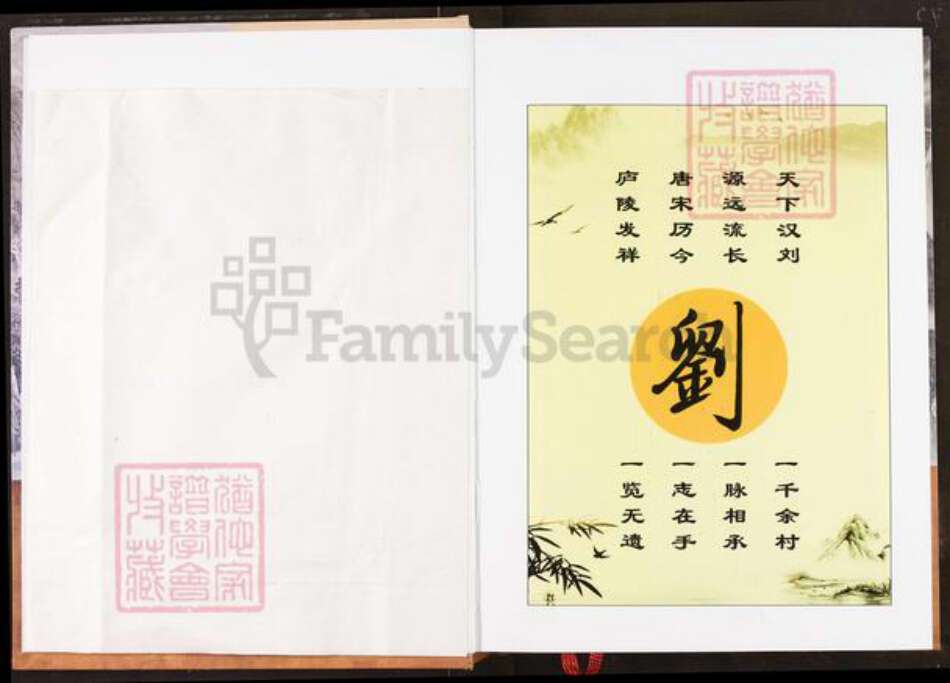 天下汉刘
源远流长
唐宋历今
庐陵发祥
劉
一千余村
一脉相承
一志在手
一览无遗
FamilySearch
譜學會
收藏
譜學會
收藏